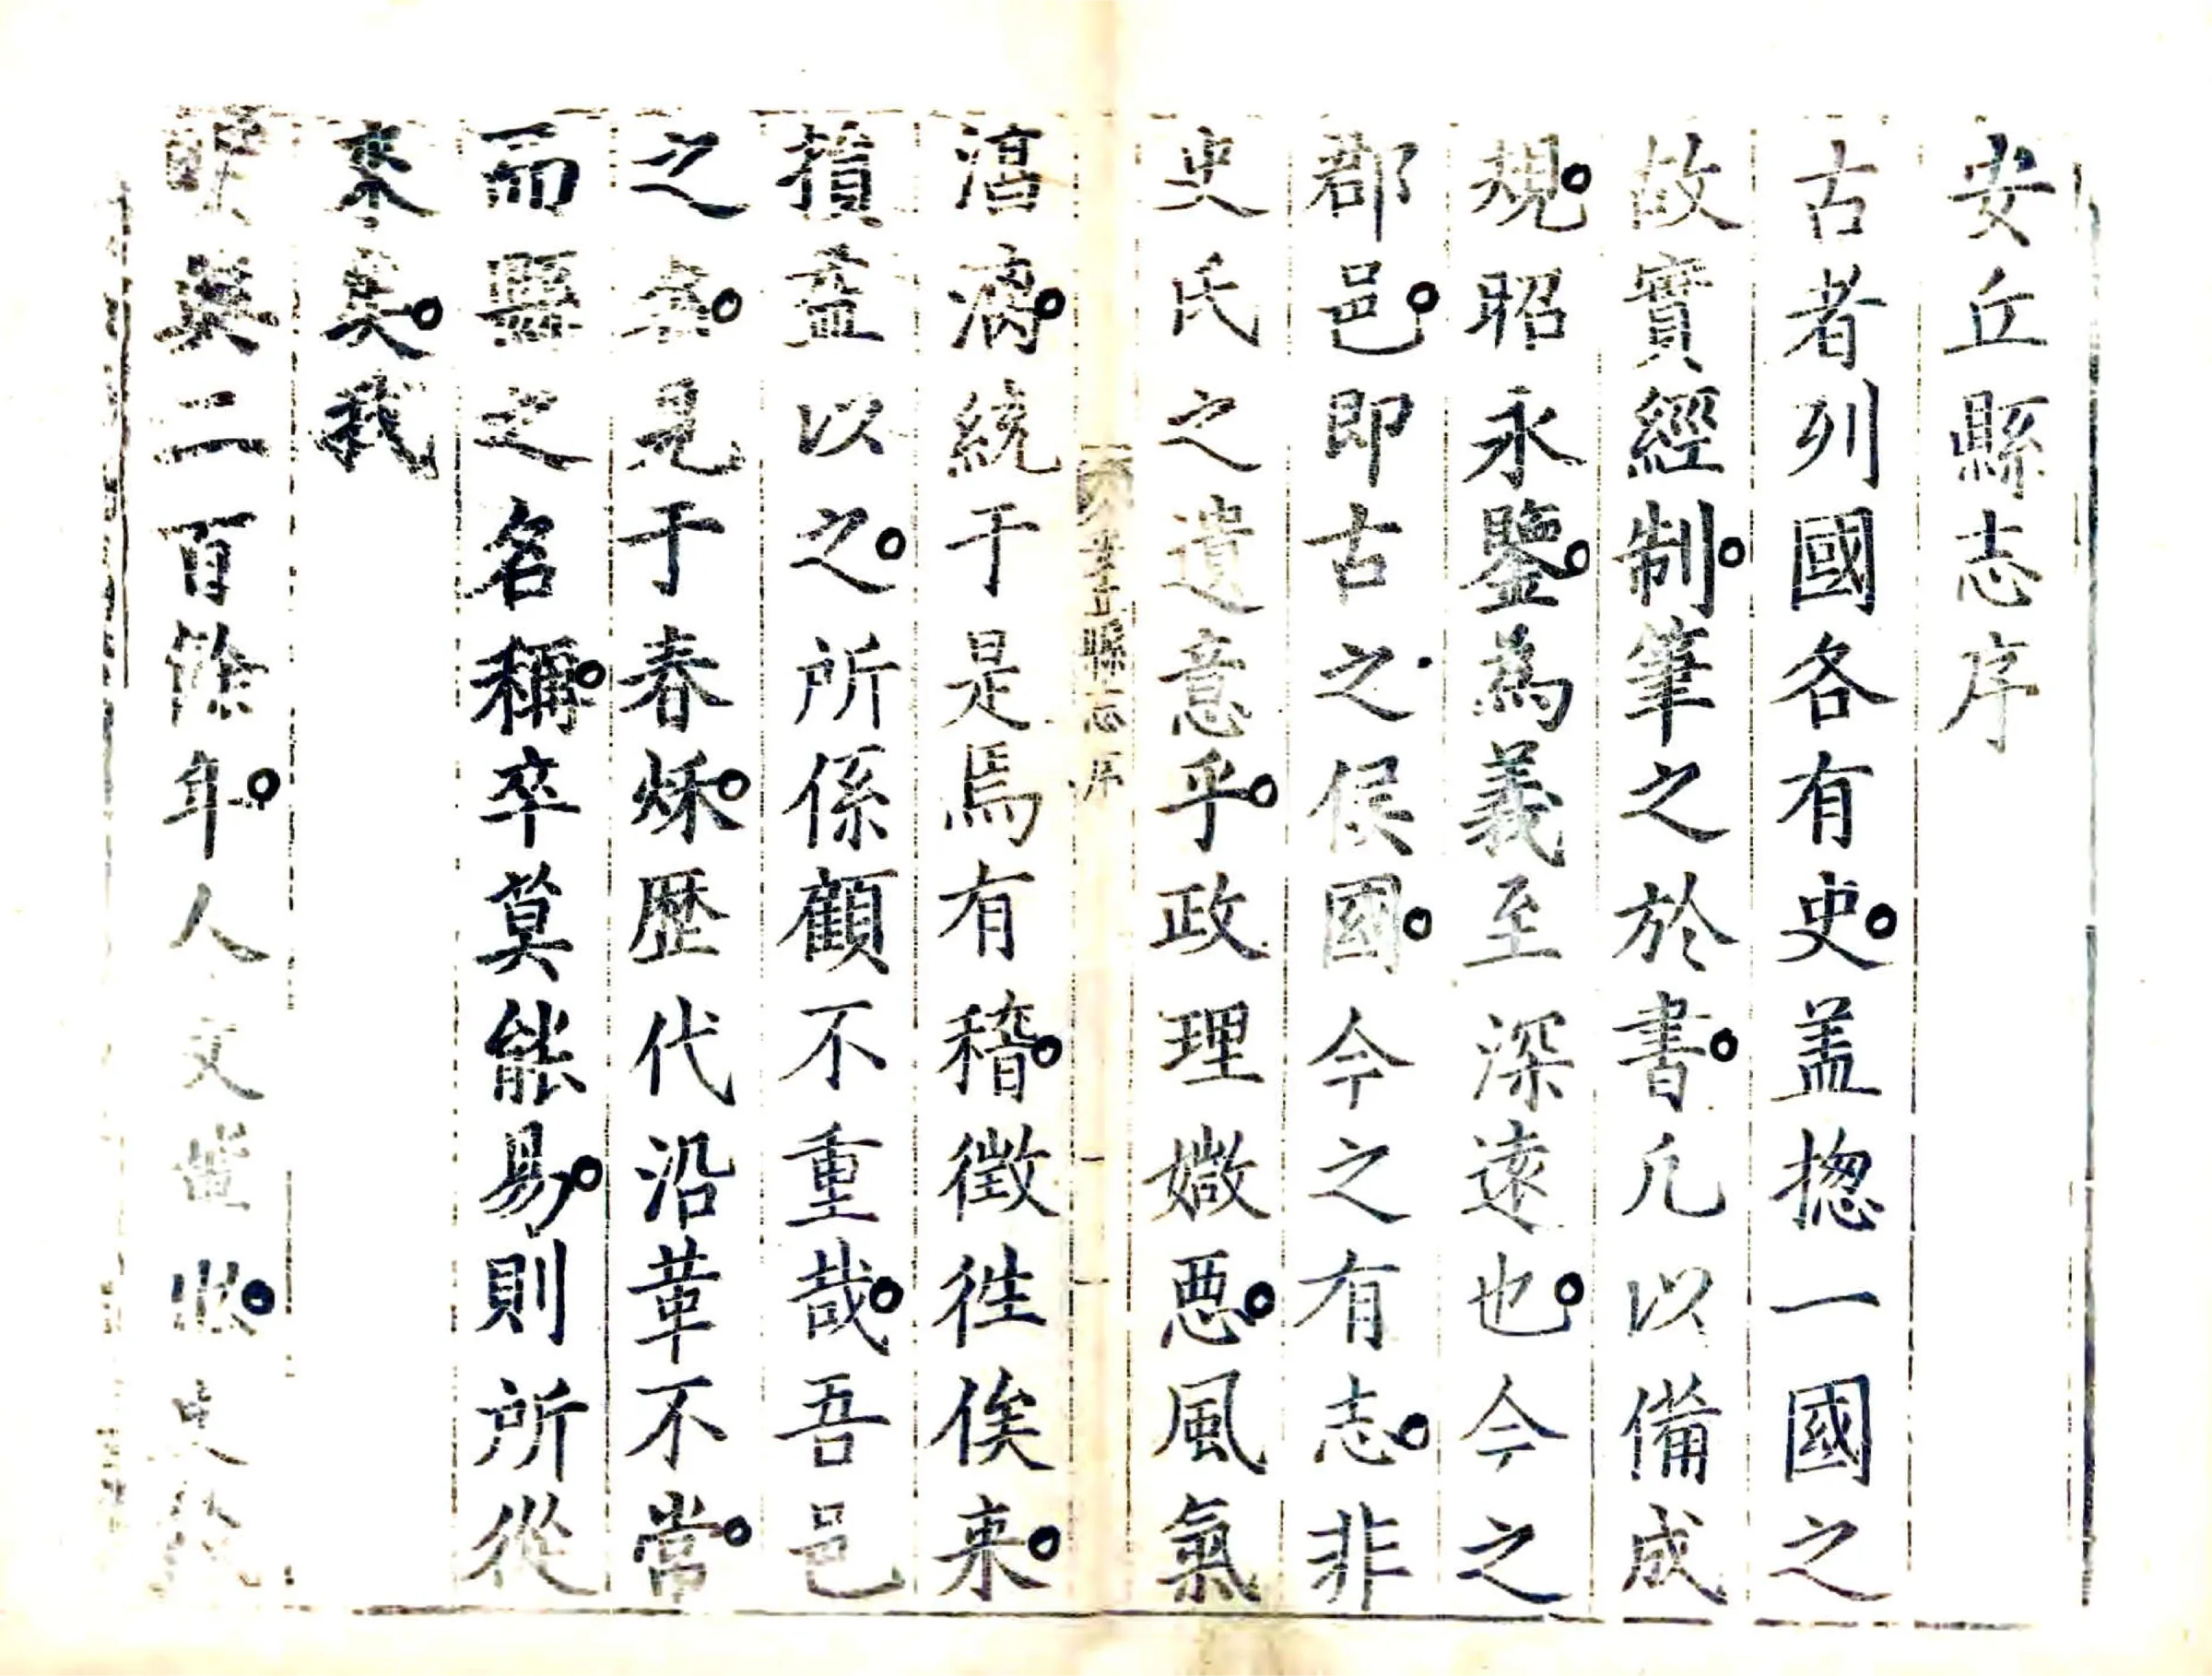 安丘縣志序
古者列國各有史盖揔一國之
故實經制筆之於書凡以備成
規昭永鑒為義至深遠也今之
郡邑即古之侯國今之有志非
史氏之遺意乎政理媺悪風氣
縣志序
一
漓統于是焉有稽徵徃俟来
損益以之所係顧不重哉吾邑
之名見于春秌歷代沿革不常
而縣之名稱卒莫能易則所從
來矣我
明興二百餘年人文